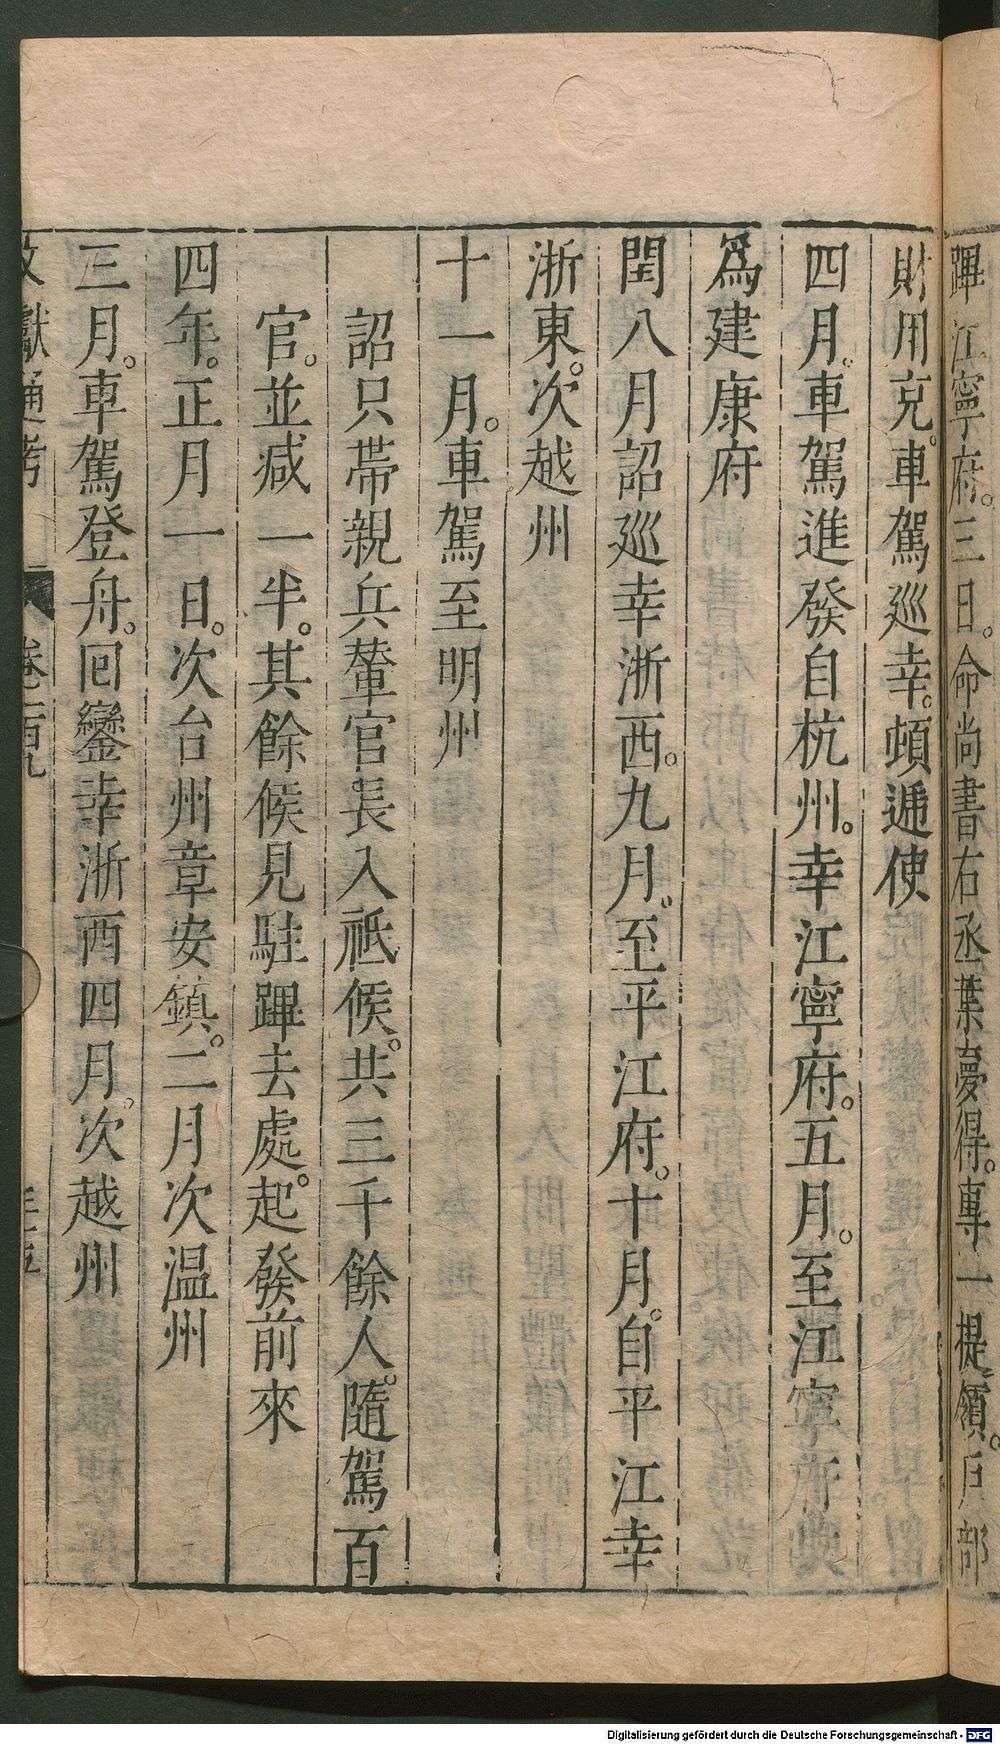 蹕江寧府。三日。命尚書右丞葉夢得。專一提領。戶部
財用克。車駕巡幸。頓遞使
四月。車駕進發自杭州。幸江寧府。五月。至江寧府
爲建康府
閏八月詔巡幸浙西。九月。至平江府。十月。自平江幸
浙東。次越州
十一月。車駕至明州
詔只帶親兵輦官長入祗候。共三千餘人。隨駕百
官。並减一半。其餘候見駐蹕去處。起發前來
四年。正月一日。次台州章安鎮。二月次温州
三月。車駕登舟。回鑾幸浙西四月。次越州
文獻通考 卷一百九
Digitalisierung gefördert durch die Deutsche Forschungsgemeinschaft - DFG